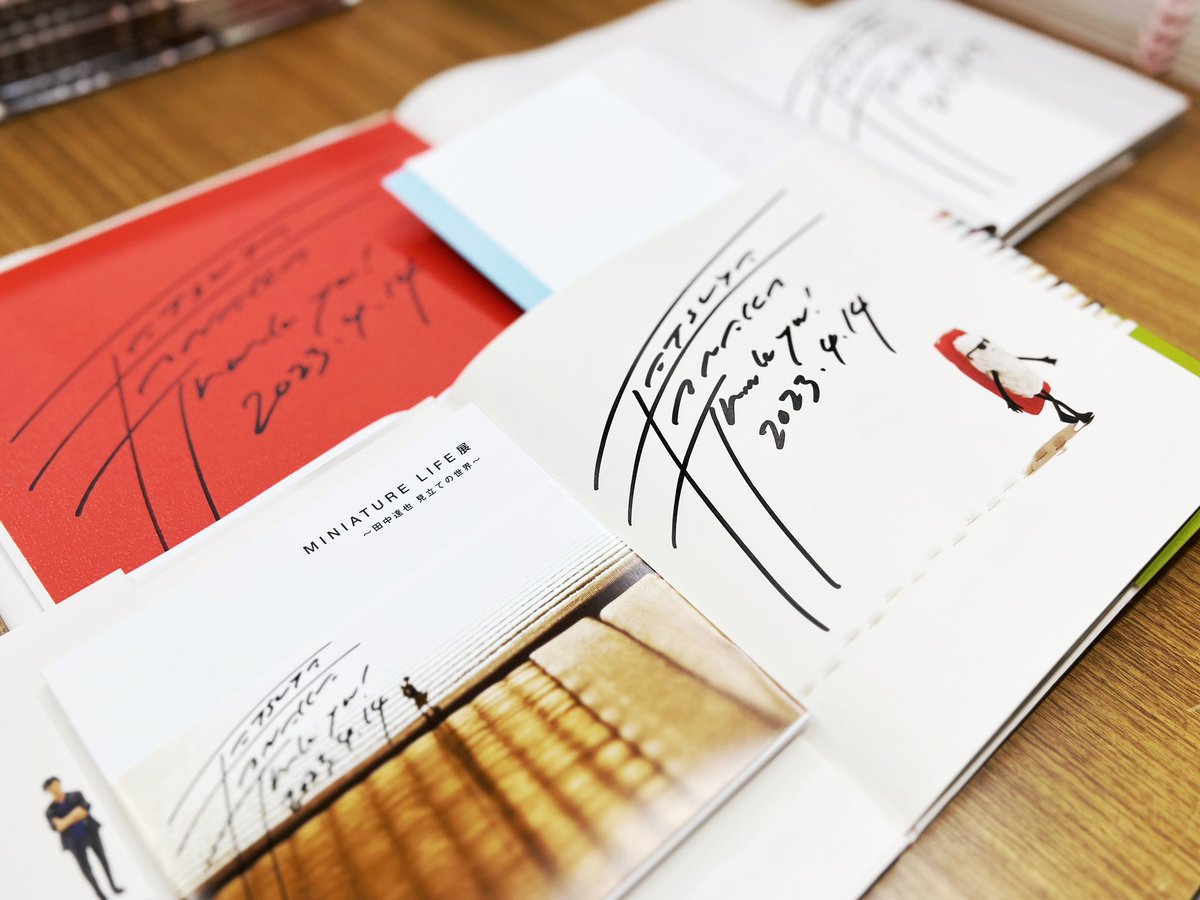 TATSUYA
TANAKA
Thank You!
2023.4.14
TATSUYA
TANAKA
Thank You!
2023.4.14
MINIATURE LIFE展
〜田中達也 見立ての世界〜
TATSUYA
TANAKA
Thank You!
2023.4.14